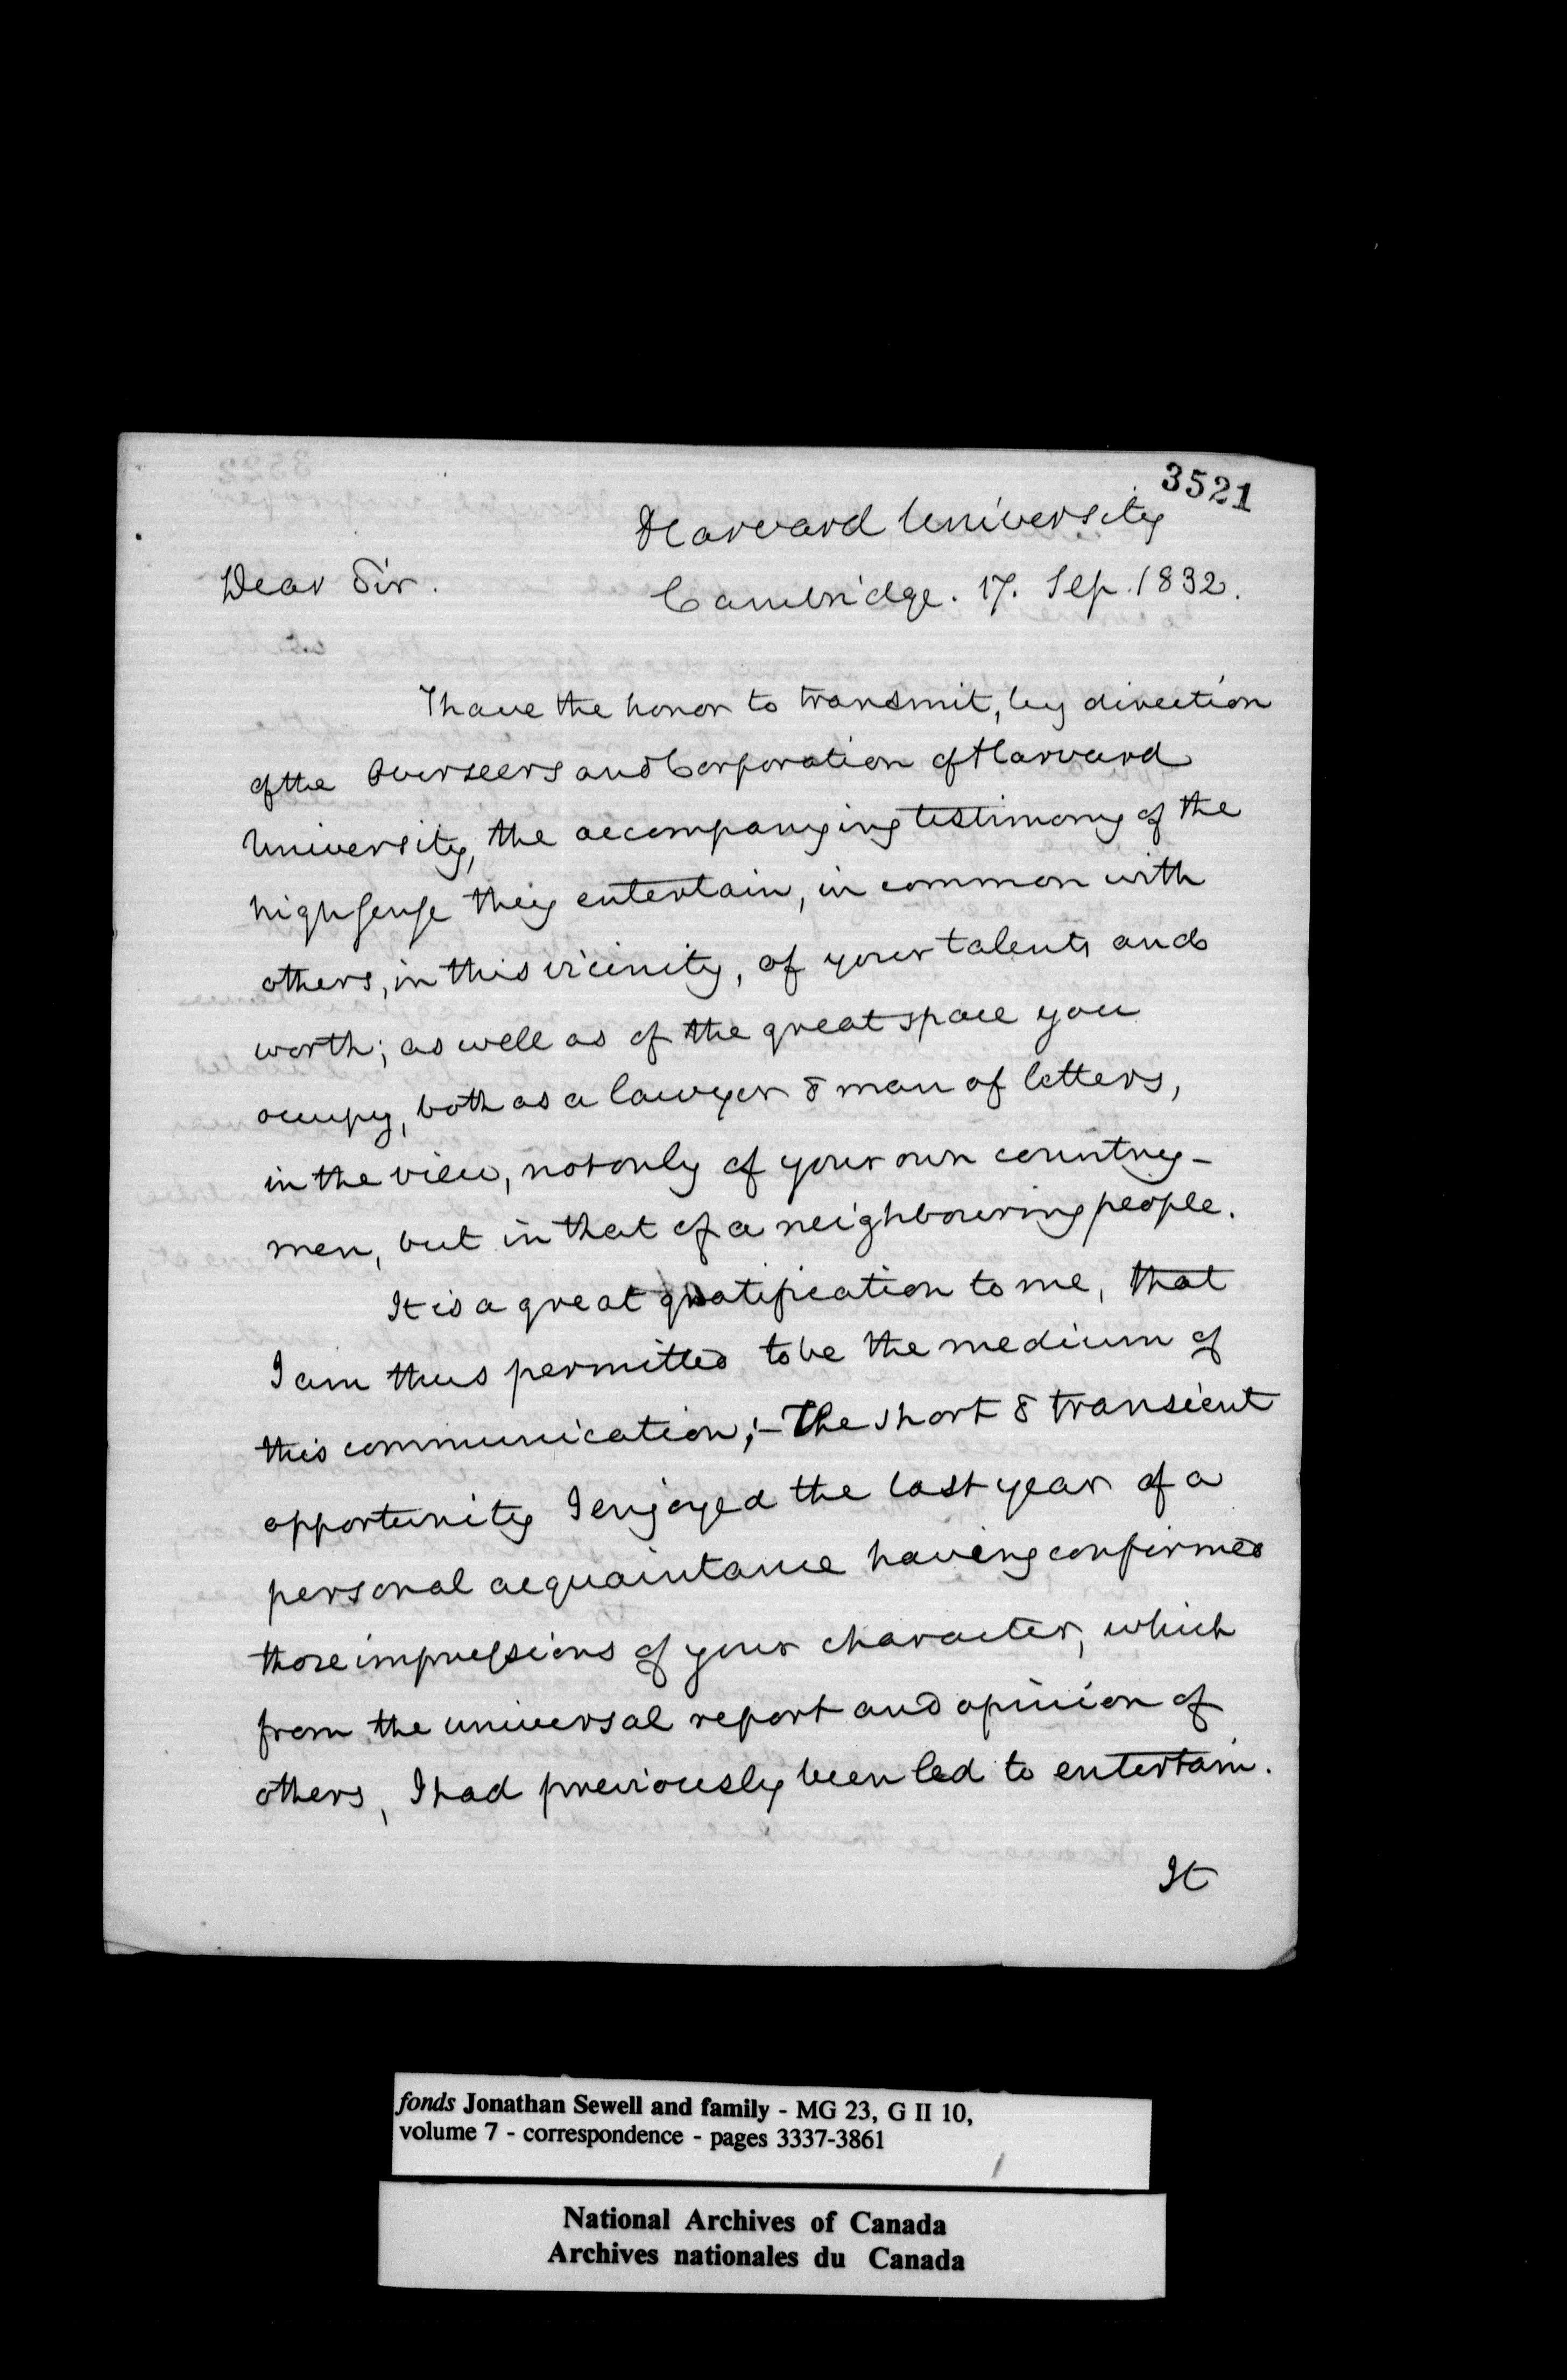 3521
Harvard University
Dear Sir.
Cambridge. 17. Sep. 1832.
I have the honor to transmit, by direction
of the Overseers and Corporation of Harvard
University, the accompanying testimony of the
high sense they entertain, in common with
others, in this vicinity, of your talents and
worth; as well as of the great space you
occupy, both as a lawyer & man of letters,
in the view, not only of your own country-
men, but in that of a neighbouring people.
It is a great gratification to me, that
I am thus permitted to be the medium of
this communication;- The short & transient
opportunity I enjoyed the last year of a
personal acquaintance having confirmed
those impressions of your character, which
from the universal report and opinion of
others, I had previously been led to entertain.
It
fonds Jonathan Sewell and family - MG 23, G II 10,
volume 7 - correspondence - pages 3337-3861
National Archives of Canada
Archives nationales du Canada